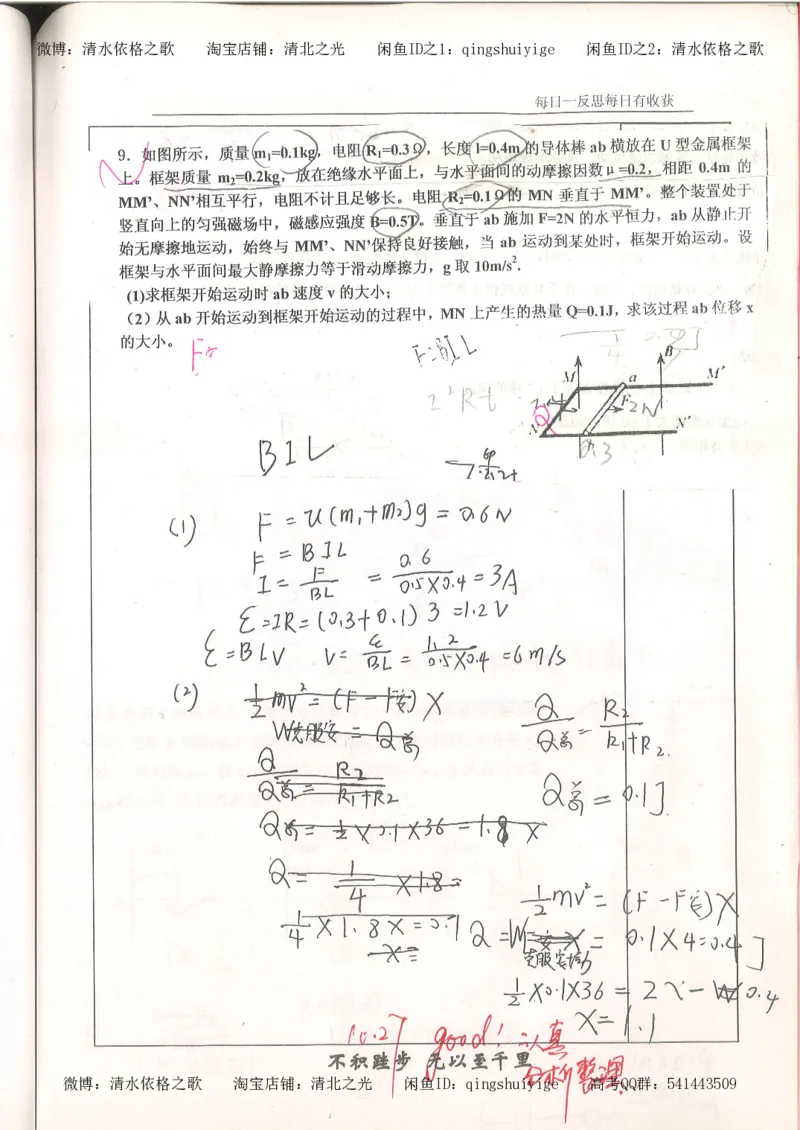 微博：清水依格之歌 淘宝店铺：清北之光 闲鱼ID之1：qingshuiyige 闲鱼ID之2：清水依格之歌
每日一反思每日有收获
9．如图所示，质量 m₁=0.1kg，电阻 R₁=0.3Ω，长度 l=0.4m 的导体棒 ab 横放在 U 型金属框架
上。框架质量 m₂=0.2kg，放在绝缘水平面上，与水平面间的动摩擦因数 μ=0.2，相距 0.4m 的
MM’、NN’相互平行，电阻不计且足够长。电阻 R₂=0.1Ω的 MN 垂直于 MM’。整个装置处于
竖直向上的匀强磁场中，磁感应强度 B=0.5T。垂直于 ab 施加 F=2N 的水平恒力，ab 从静止开
始无摩擦地运动，始终与 MM’、NN’保持良好接触，当 ab 运动到某处时，框架开始运动。设
框架与水平面间最大静摩擦力等于滑动摩擦力，g 取 10m/s².
(1)求框架开始运动时 ab 速度 v 的大小；
（2）从 ab 开始运动到框架开始运动的过程中，MN 上产生的热量 Q=0.1J，求该过程 ab 位移 x
的大小。
F=BIL
I²Rt
B
M a M′
F 2N
N N′
0.3
BIL
(1) F = u(m₁+m₂)g = 0.6N
F = BIL
I = F/BL = 0.6/0.5×0.4 = 3A
ε=IR=(0.3+0.1) 3 =1.2V
ε=BLv v= ε/BL = 1.2/0.5×0.4 =6m/s
(2) ½mv²=(F-F安)X
W克服安 = Q总
Q/Q总 = R₂/R₁+R₂
Q/Q总 = R₂/R₁+R₂
Q总 = 0.1J
Q总= ½×0.1×36 = 1.8 X
Q= 1/4 ×1.8=
½mv²= (F-F安)X
1/4 ×1.8X=0.1
X=
Q =W克服安 = 0.1×4=0.4J
½×0.1×36 = 2X-0.4
X=1.1
10.27 good! 认真
分析整理
不积跬步 无以至千里
微博：清水依格之歌 淘宝店铺：清北之光 闲鱼ID：qingshuiyige 高考QQ群：541443509